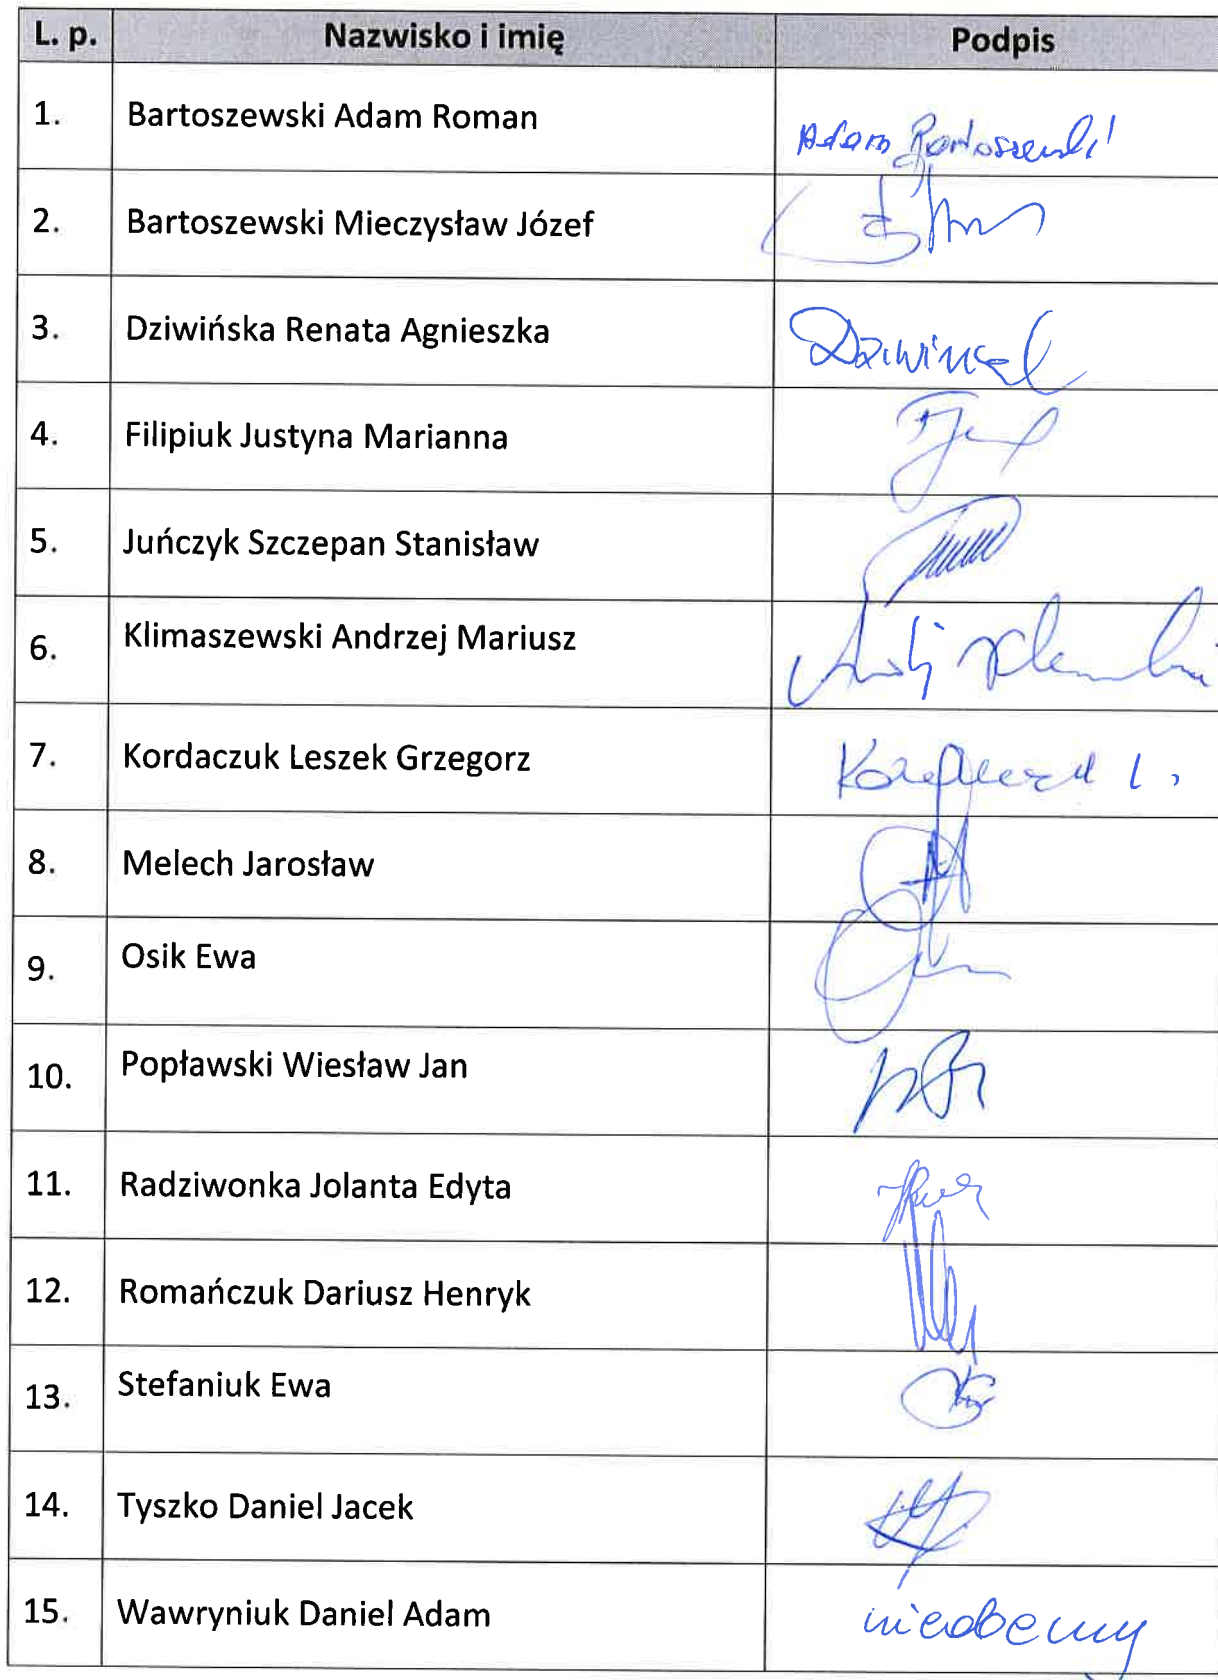 L. p. Nazwisko i imię Podpis
1. Bartoszewski Adam Roman Adam Bartoszewski
2. Bartoszewski Mieczysław Józef
3. Dziwińska Renata Agnieszka
4. Filipiuk Justyna Marianna
5. Juńczyk Szczepan Stanisław
6. Klimaszewski Andrzej Mariusz
7. Kordaczuk Leszek Grzegorz
8. Melech Jarosław
9. Osik Ewa
10. Popławski Wiesław Jan
11. Radziwonka Jolanta Edyta
12. Romańczuk Dariusz Henryk
13. Stefaniuk Ewa
14. Tyszko Daniel Jacek
15. Wawryniuk Daniel Adam nieobecny